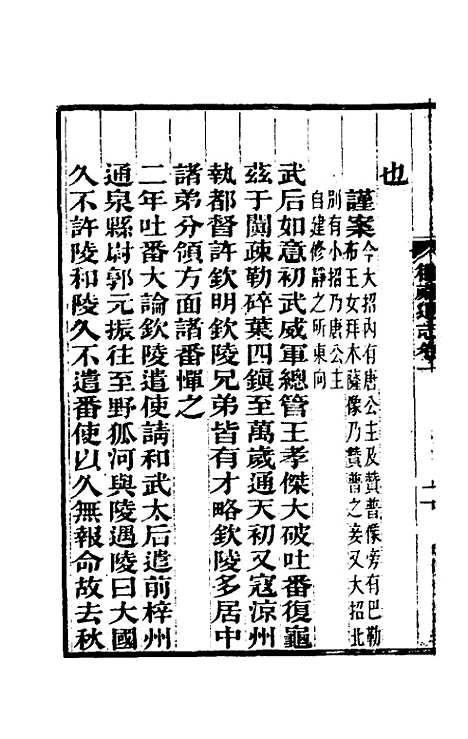 也
謹案今大招內有唐公主及贊普像旁有巴勒
布王女拜木薩像乃贊普之妾又大招北
別有小招乃唐公主
自建修靜之所東向
武后如意初武威軍總管王孝傑大破吐番復龜
茲于闐疎勒碎葉四鎮至萬歲通天初又寇涼州
執都督許欽明欽陵兄弟皆有才略欽陵多居中
諸弟分領方面諸番憚之
二年吐番大論欽陵遣使請和武太后遣前梓州
通泉縣尉郭元振往至野狐河與陵遇陵曰大國
久不許陵和陵久不遣番使以久無報命故去秋